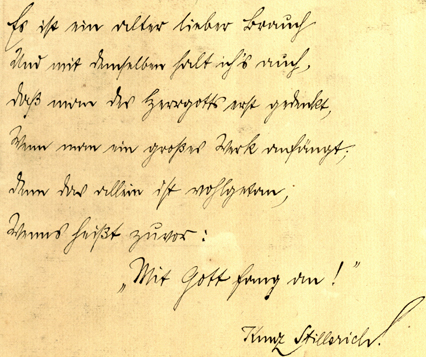 Es ist ein alter lieber Brauch
Und mit demselben halt ich's auch,
daß man des Herrgotts erst gedenkt,
Wenn man ein großes Werk anfängt;
denn das allein ist wohlgetan;
Wenns heißt zuvor:
„Mit Gott fang an!"
Kunz Stillerich.